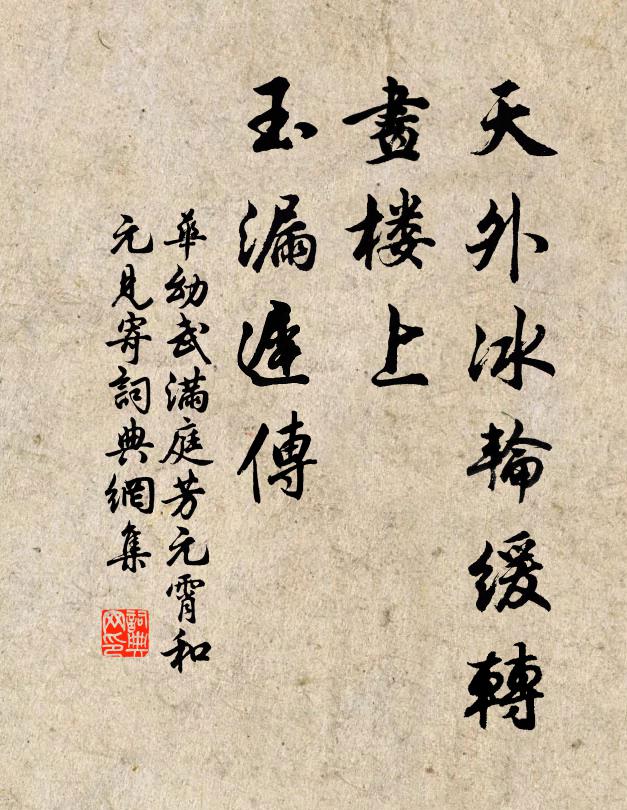 天外冰輪緩轉
畫楼上
玉漏遲傳
華幼武满庭芳元霄和
元見寄詞典網集
詞典
网印